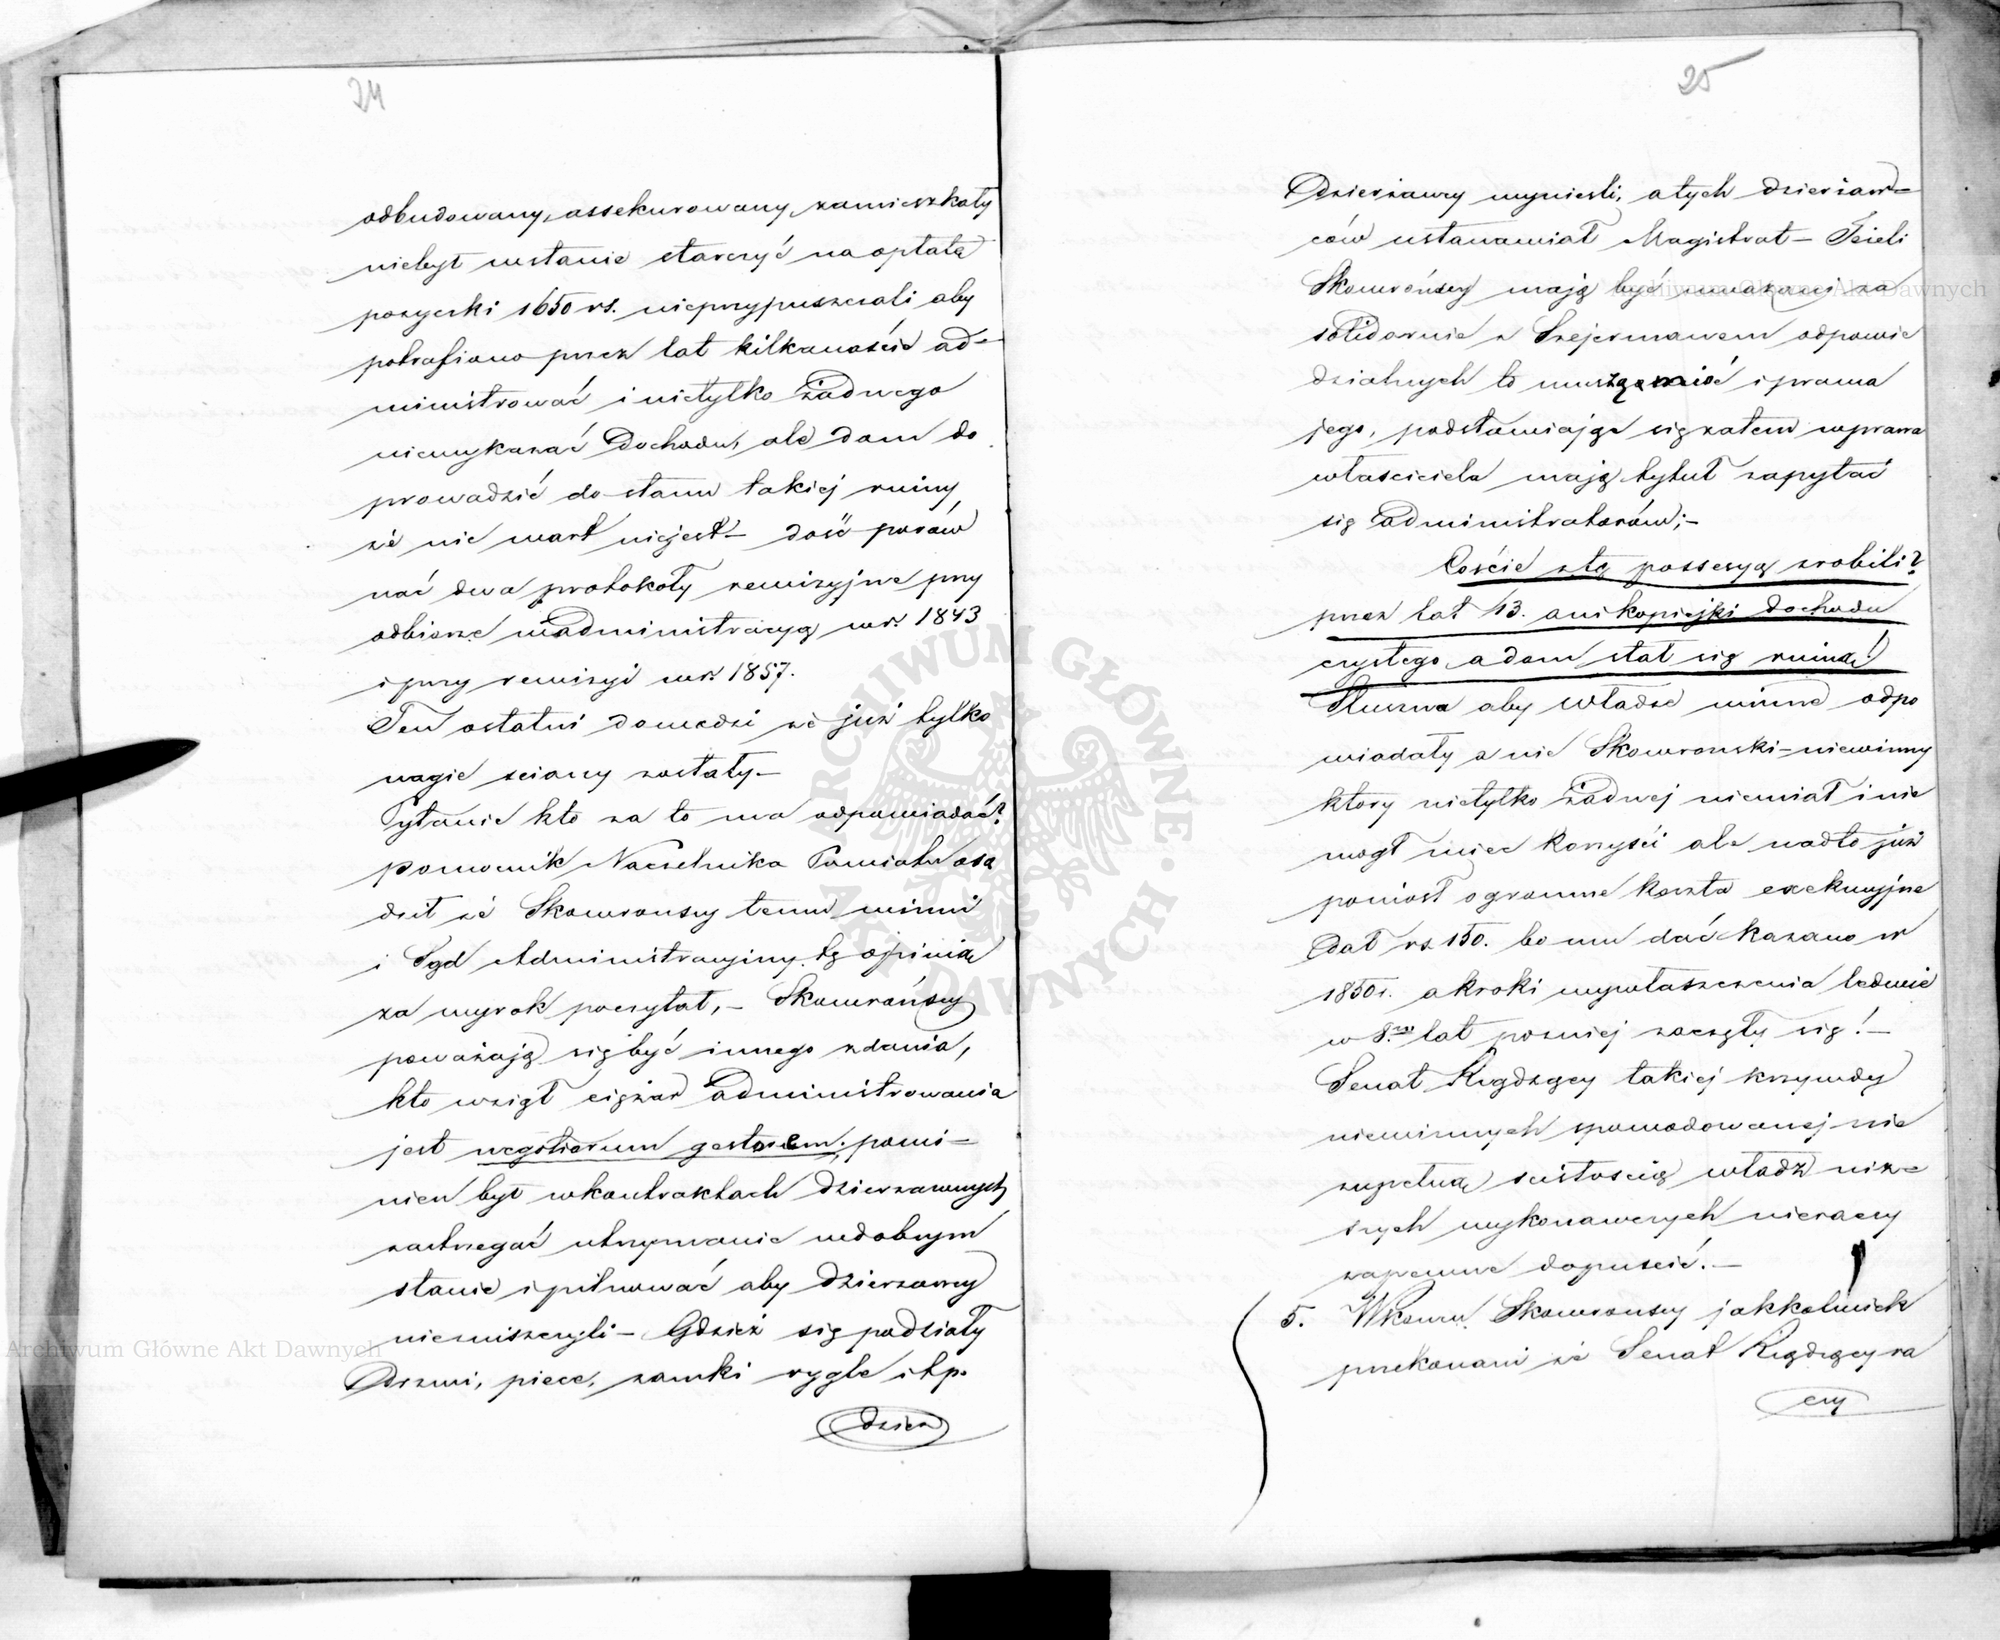 24
odbudowany, assekurowany, zamieszkały
niebył wstanie starczyć na opłatę
pożyczki 1650 rs. nieprzypuszczali aby
potrafiono przez lat kilkanaście ad=
ministrować i nietylko żadnego
niewykazać Dochodu, ale dom do
prowadzić do stanu takiej ruiny
że nic wart niejest – dość porów
nać dwa protokoły rewizyjne przy
odbiorze wadministracyą wr. 1843
i przy rewizyi wr. 1857.
Ten ostatni dowodzi że już tylko
nagie sciany zostały –
Pytanie kto za to ma odpowiadać?
pomocnik Naczelnika Powiatu osą
dził że Skowronscy temu winni
i Sąd Administracyjny tę opinię
za wyrok poczytał, – Skowrońscy
poważają się być innego zdania,
kto wziął ciężar Administrowania
jest negotiorum gestorem, powi–
nien był wkontraktach Dzierzawnych
zastrzegać utrzymanie wdobrym
stanie i pilnować aby Dzierzawcy
nieniszczyli – Gdzież się podziały
Drzwi, piece, zamki rygle itp.
dzier
25
Dzierżawcy wynieśli, a tych dzierżaw=
ców ustanawiał Magistrat – Jeżeli
Skowrońscy mają być uważani za
solidarnie z Szejermanem odpowie
dzialnych to muszą mieć i prawa
jego, podstawiając się zatem wprawa
właściciela mają tytuł zapytać
się Administratorów; –
Cościе złą possesyą zrobili?
przez lat 13. ani kopiejki dochodu
czystego, a dom stał się ruiną!
Słuszna aby Władze winne odpo
wiadały a nie Skowronski – niewinny
ktory nietylko żadnej niemiał i nie
mogł miec korzyści ale nadto już
poniosł ogromne koszta exekucyjne
Dał rs 150. bo mu dać kazano w
1850 r. a kroki wywłaszczenia ledwie
w 8. lat pozniej zaczęły się! –
Senat Rządzący takiej krzywdy
niewinnych spowodowanej nie
zupełną scisłoscią władz niż=
szych wykonawczych nieraczy
zapewne dopuścić. –
5. Wkoncu Skowronscy jakkolwiek
przekonani że Senat Rządzący ra
czy
Archiwum Główne Akt Dawnych
Archiwum Główne Akt Dawnych
ARCHIWUM GŁÓWNE AKT DAWNYCH